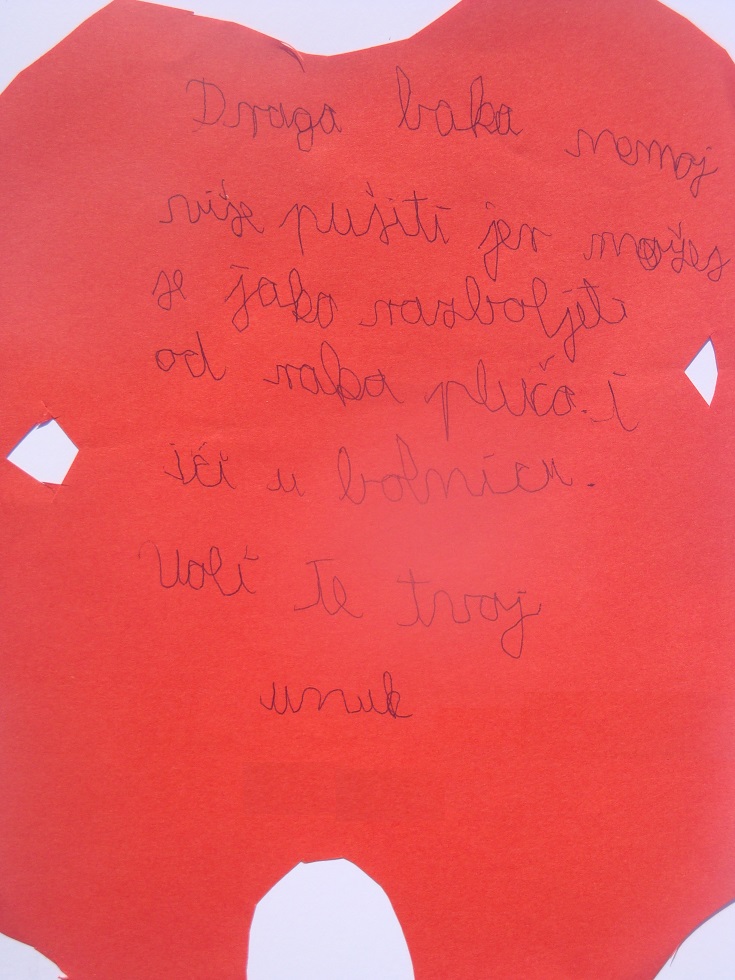 Draga baka nemoj
više pušiti jer možeš
se jako razboljeti
od raka pluća. i
ići u bolnicu.
Voli te tvoj
unuk